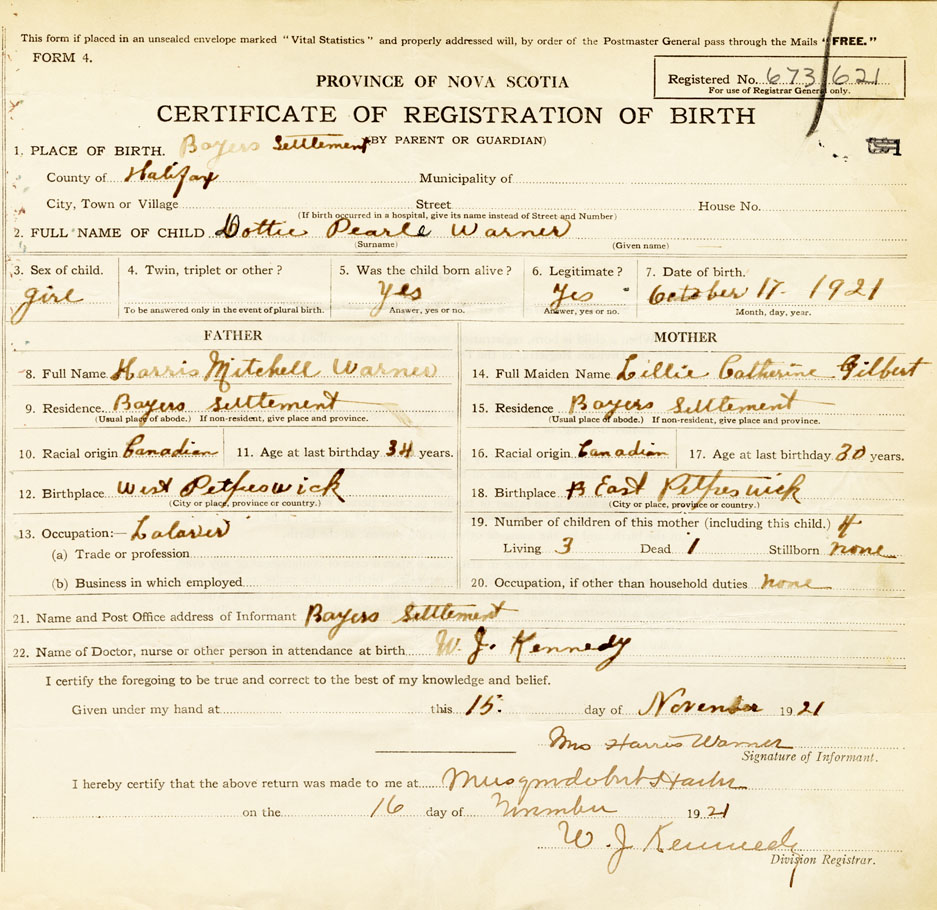 This form if placed in an unsealed envelope marked "Vital Statistics" and properly addressed will, by order of the Postmaster General pass through the Mails "FREE."
FORM 4.
PROVINCE OF NOVA SCOTIA
Registered No. 673 621
For use of Registrar General only.
CERTIFICATE OF REGISTRATION OF BIRTH
(BY PARENT OR GUARDIAN)
1. PLACE OF BIRTH. Bayers Settlement
County of Halifax Municipality of
City, Town or Village Street House No.
(If birth occurred in a hospital, give its name instead of Street and Number)
2. FULL NAME OF CHILD Dottie Pearle Warner
(Surname) (Given name)
3. Sex of child. 4. Twin, triplet or other? 5. Was the child born alive? 6. Legitimate? 7. Date of birth.
girl Yes Yes October 17. 1921
To be answered only in the event of plural birth. Answer, yes or no. Answer, yes or no. Month, day, year.
FATHER
8. Full Name Harris Mitchell Warner
9. Residence Bayers Settlement
(Usual place of abode.) If non-resident, give place and province.
10. Racial origin Canadian 11. Age at last birthday 34 years.
12. Birthplace West Petpeswick
(City or place, province or country.)
13. Occupation:— Labarer
(a) Trade or profession
(b) Business in which employed
MOTHER
14. Full Maiden Name Lillie Catherine Gilbert
15. Residence Bayers Settlement
(Usual place of abode.) If non-resident, give place and province.
16. Racial origin Canadian 17. Age at last birthday 30 years.
18. Birthplace East Petpeswick
(City or place, province or country.)
19. Number of children of this mother (including this child.) 4
Living 3 Dead 1 Stillborn none
20. Occupation, if other than household duties none
21. Name and Post Office address of Informant Bayers Settlement
22. Name of Doctor, nurse or other person in attendance at birth W. J. Kennedy
I certify the foregoing to be true and correct to the best of my knowledge and belief.
Given under my hand at this 15. day of November 1921
Mrs Harris Warner
Signature of Informant.
I hereby certify that the above return was made to me at Musquodoboit Harbr
on the 16 day of November 1921
W. J. Kennedy
Division Registrar.